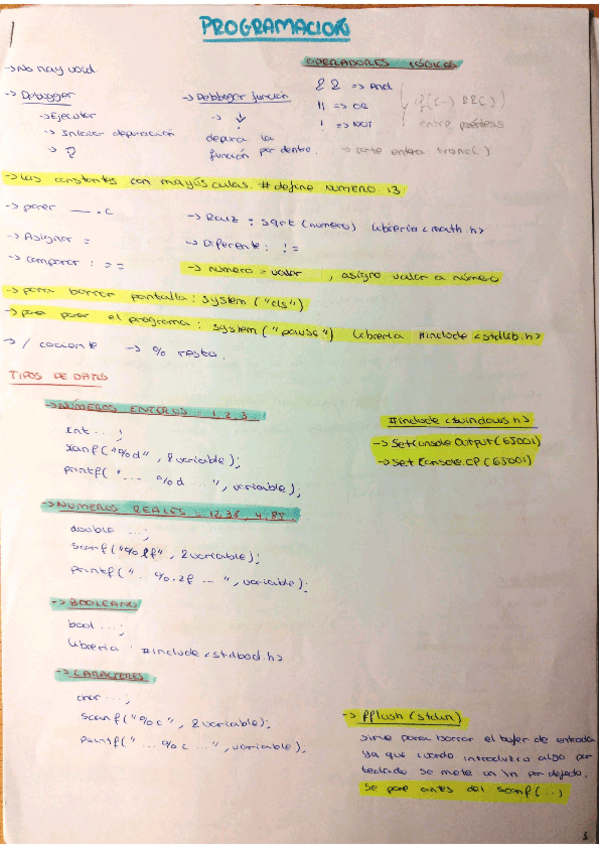 PROGRAMACION
OPERADORES LÓGICOS
&& => And
|| => OR
! => NOT
-> No hay void
-> Debugger
-> Ejecutar
-> Iniciar depuración
-> Debbugar función
depura la
función por dentro.
-> parte entera trunc( )
-> Las constantes con mayúsculas. #define NUMERO 13
-> poner ___.c
-> Raiz = sqrt (numero) libreria <math.h>
-> Asignar =
-> Diferente: !=
-> Comparar: ==
-> numero = valor , asigno valor a número
-> para borrar pantalla: system ("cls")
-> para parar el programa: system ("pause") libreria #include <stdlib.h>
-> / cociente -> % resto.
TIPOS DE DATOS
-> NÚMEROS ENTEROS = 1, 2, 3...
int ...;
scanf ("%d", &variable);
printf ("... %d ...", variable);
#include <windows.h>
-> SetConsoleOutput (65001)
-> Set Console.CP (65001)
-> NUMEROS REALES = 12,38, 4,85...
double ...;
scanf ("%lf", &variable);
printf (".. %.2f ...", variable);
-> BOOLEANO
bool ...;
libreria : #include <stdbool.h>
-> CARACTERES
char ...;
scanf ("%c", &variable);
printf ("... %c ...", variable);
-> fflush (stdin)
sirve para borrar el bufer de entrada
ya que cuando introduzco algo por
teclado se mete un \n por defecto.
Se pone antes del scanf (..)
1